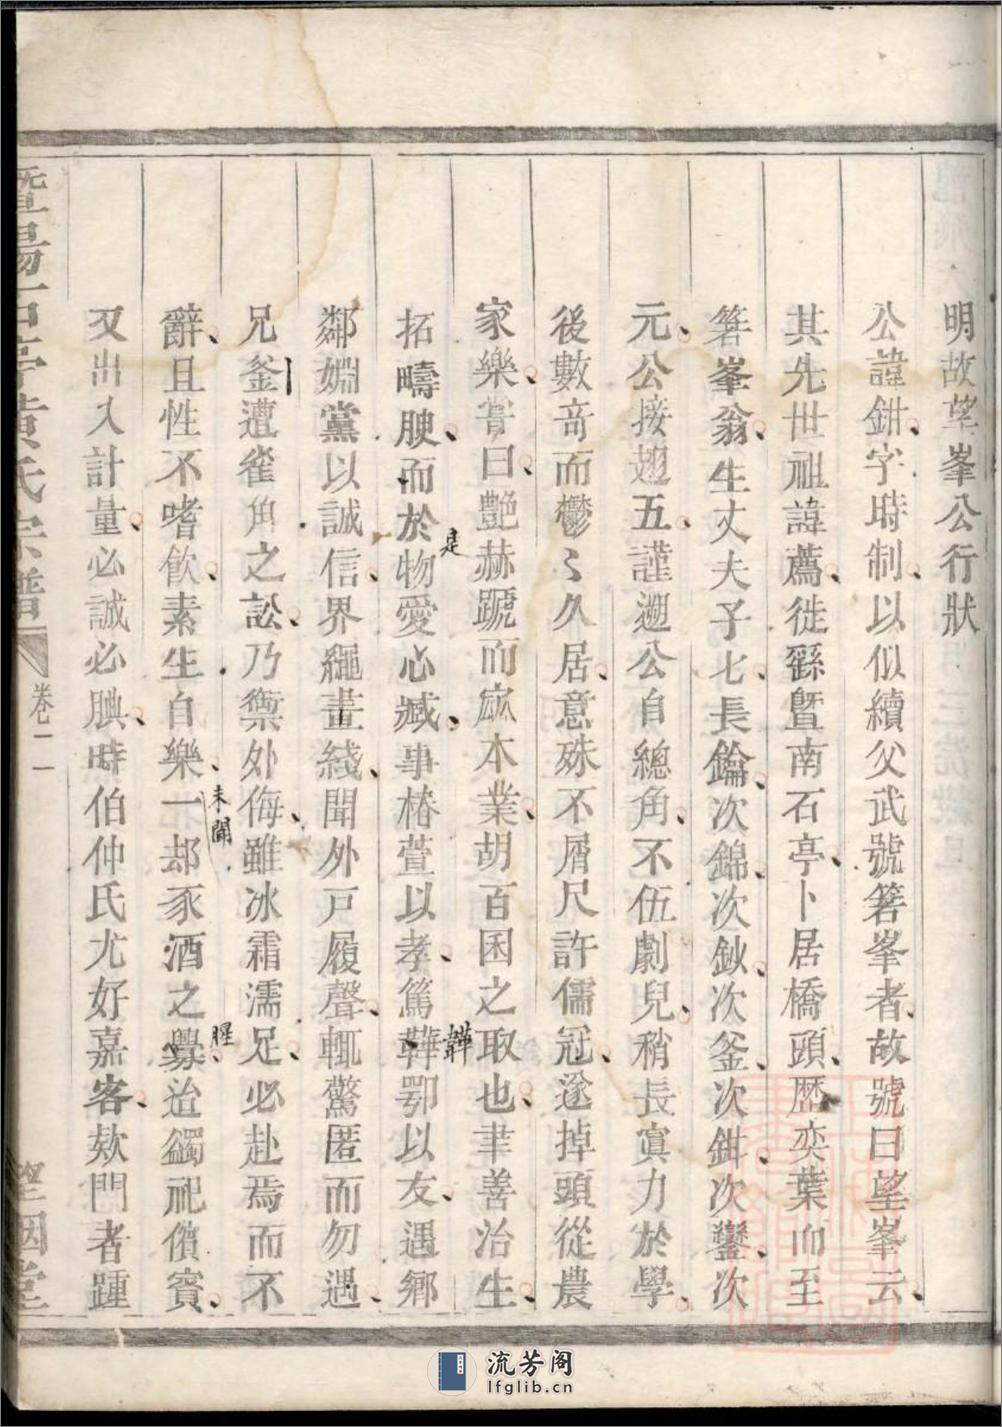 明故望峯公行狀
公諱鉗字時制以似續父武號箬峯者故號曰望峯云
其先世祖諱薦徙繇暨南石亭卜居橋頭歷奕葉而至
箬峯翁生丈夫子七長鑰次錦次鈥次釜次鉗次鑾次
元公接趨五謹遡公自總角不伍劇兒稍長寘力於學
後數竒而鬱〻久居意殊不屑尺許儒冠遂掉頭從農
家樂嘗曰艷赫蹏而窳本業胡百困之取也聿善治生
拓疇腴而於物愛心臧事椿萱以孝篤鞾鄂以友遇鄉
是
韡
鄰婣黨以誠信界繩畫綫聞外戸履聲輒驚匿而勿遇
兄釜遭雀角之訟乃禦外侮雖冰霜濡足必赴焉而不
辭且性不嗜飲素生自樂一却豕酒之釁治蠲祀儐賓
未聞
腥
又出入計量必誠必腆時伯仲氏尤好嘉客欵門者踵
暨陽石亭黄氏宗譜
卷二
一
望烟堂
流芳阁
lfglib.cn